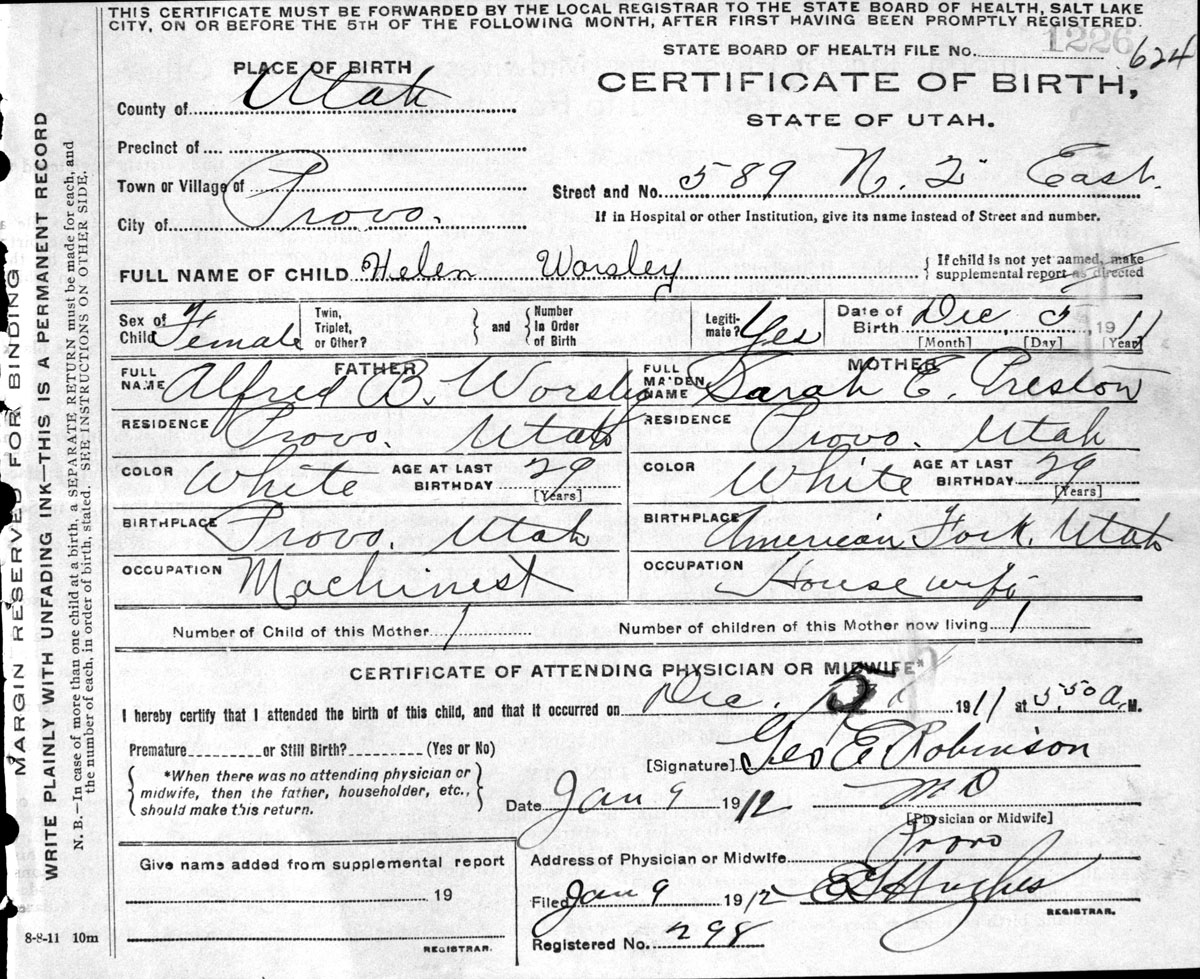 THIS CERTIFICATE MUST BE FORWARDED BY THE LOCAL REGISTRAR TO THE STATE BOARD OF HEALTH, SALT LAKE
CITY, ON OR BEFORE THE 5TH OF THE FOLLOWING MONTH, AFTER FIRST HAVING BEEN PROMPTLY REGISTERED.
1226
STATE BOARD OF HEALTH FILE No. 624
PLACE OF BIRTH
CERTIFICATE OF BIRTH,
STATE OF UTAH.
County of Utah
Precinct of
Town or Village of
City of Provo.
Street and No. 589 N. 2" East.
If in Hospital or other Institution, give its name instead of Street and number.
FULL NAME OF CHILD Helen Worsley
{ If child is not yet named, make
supplemental report as directed
Sex of Child Female
Twin, Triplet, or Other? } and { Number In Order of Birth
Legiti-mate? Yes
Date of Birth Dec 5 1911
[Month] [Day] [Year]
FATHER
FULL NAME Alfred B. Worsley
RESIDENCE Provo. Utah
COLOR White AGE AT LAST BIRTHDAY 29 [Years]
BIRTHPLACE Provo. Utah
OCCUPATION Machinest
MOTHER
FULL MAIDEN NAME Sarah E. Preston
RESIDENCE Provo. Utah
COLOR White AGE AT LAST BIRTHDAY 29 [Years]
BIRTHPLACE American Fork. Utah
OCCUPATION Housewife
Number of Child of this Mother 1 Number of children of this Mother now living 1
CERTIFICATE OF ATTENDING PHYSICIAN OR MIDWIFE*
I hereby certify that I attended the birth of this child, and that it occurred on Dec. 5 1911 at 5.50 a. M.
Premature or Still Birth? (Yes or No)
[Signature] Geo E. Robinson
{ *When there was no attending physician or
midwife, then the father, householder, etc.,
should make this return. }
Date Jan 9 1912 M D
[Physician or Midwife]
Give name added from supplemental report
19
REGISTRAR.
Address of Physician or Midwife Provo
Filed Jan 9 1912 Hughes
REGISTRAR.
Registered No. 298
8-8-11 10m
MARGIN RESERVED FOR BINDING
WRITE PLAINLY WITH UNFADING INK—THIS IS A PERMANENT RECORD
N. B.—In case of more than one child at a birth, a SEPARATE RETURN must be made for each, and
the number of each, in order of birth, stated. SEE INSTRUCTIONS ON OTHER SIDE.